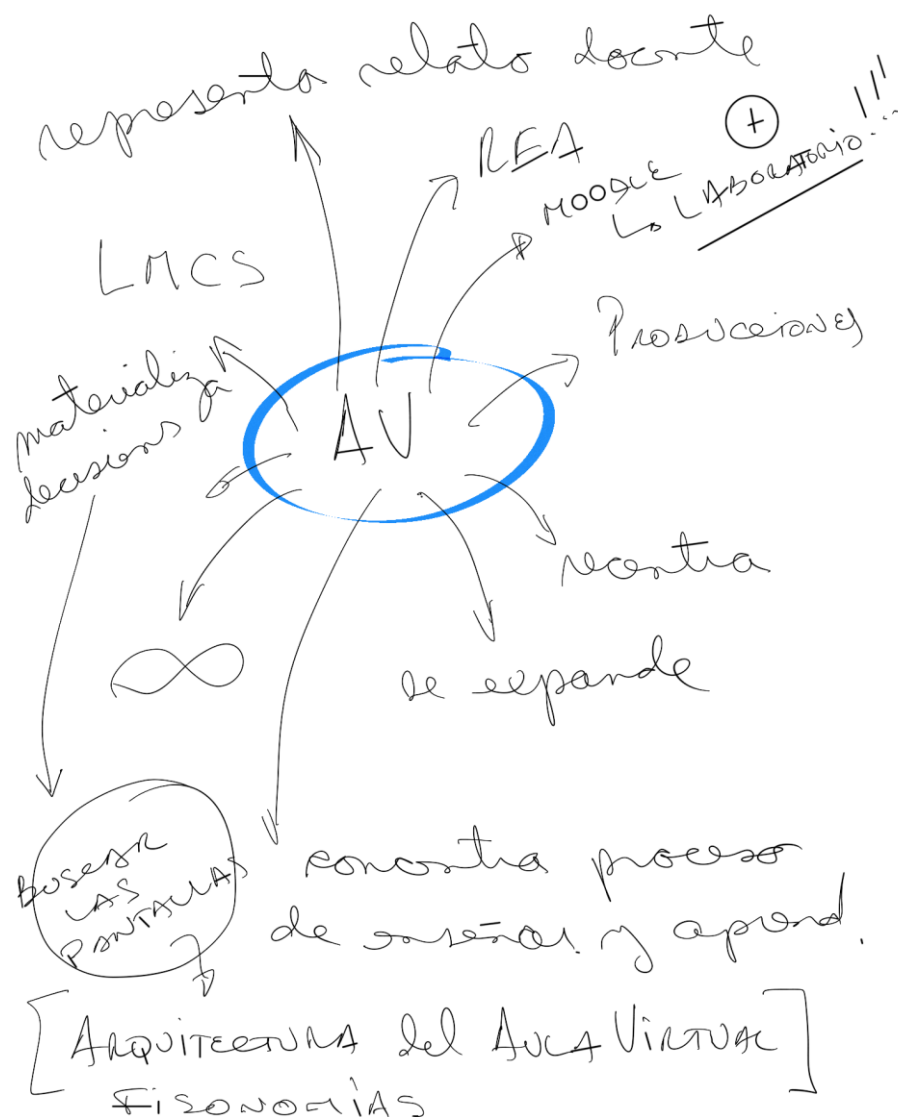 representa relato docente
REA
MOODLE +
↳ LABORATORIO!!!...
LMCS
PRODUCCIONES
materializa
decisions
AV
∞
se expande
BUSCAR
LAS
PANTALLAS
proceso
de enseñar y aprend.
[ARQUITECTURA del AULA VIRTUAL]
FISONOMÍAS